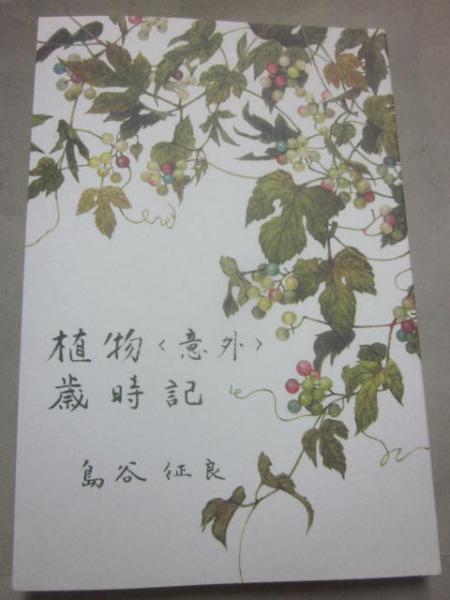 植物〈意外〉
歳時記
島谷征良